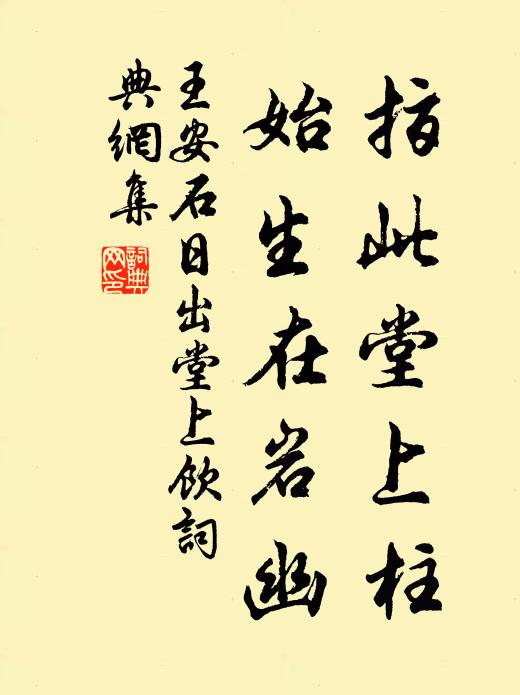 指此堂上柱
始生在岩幽
王安石日出堂上飲詞
典網集
詞典
网印